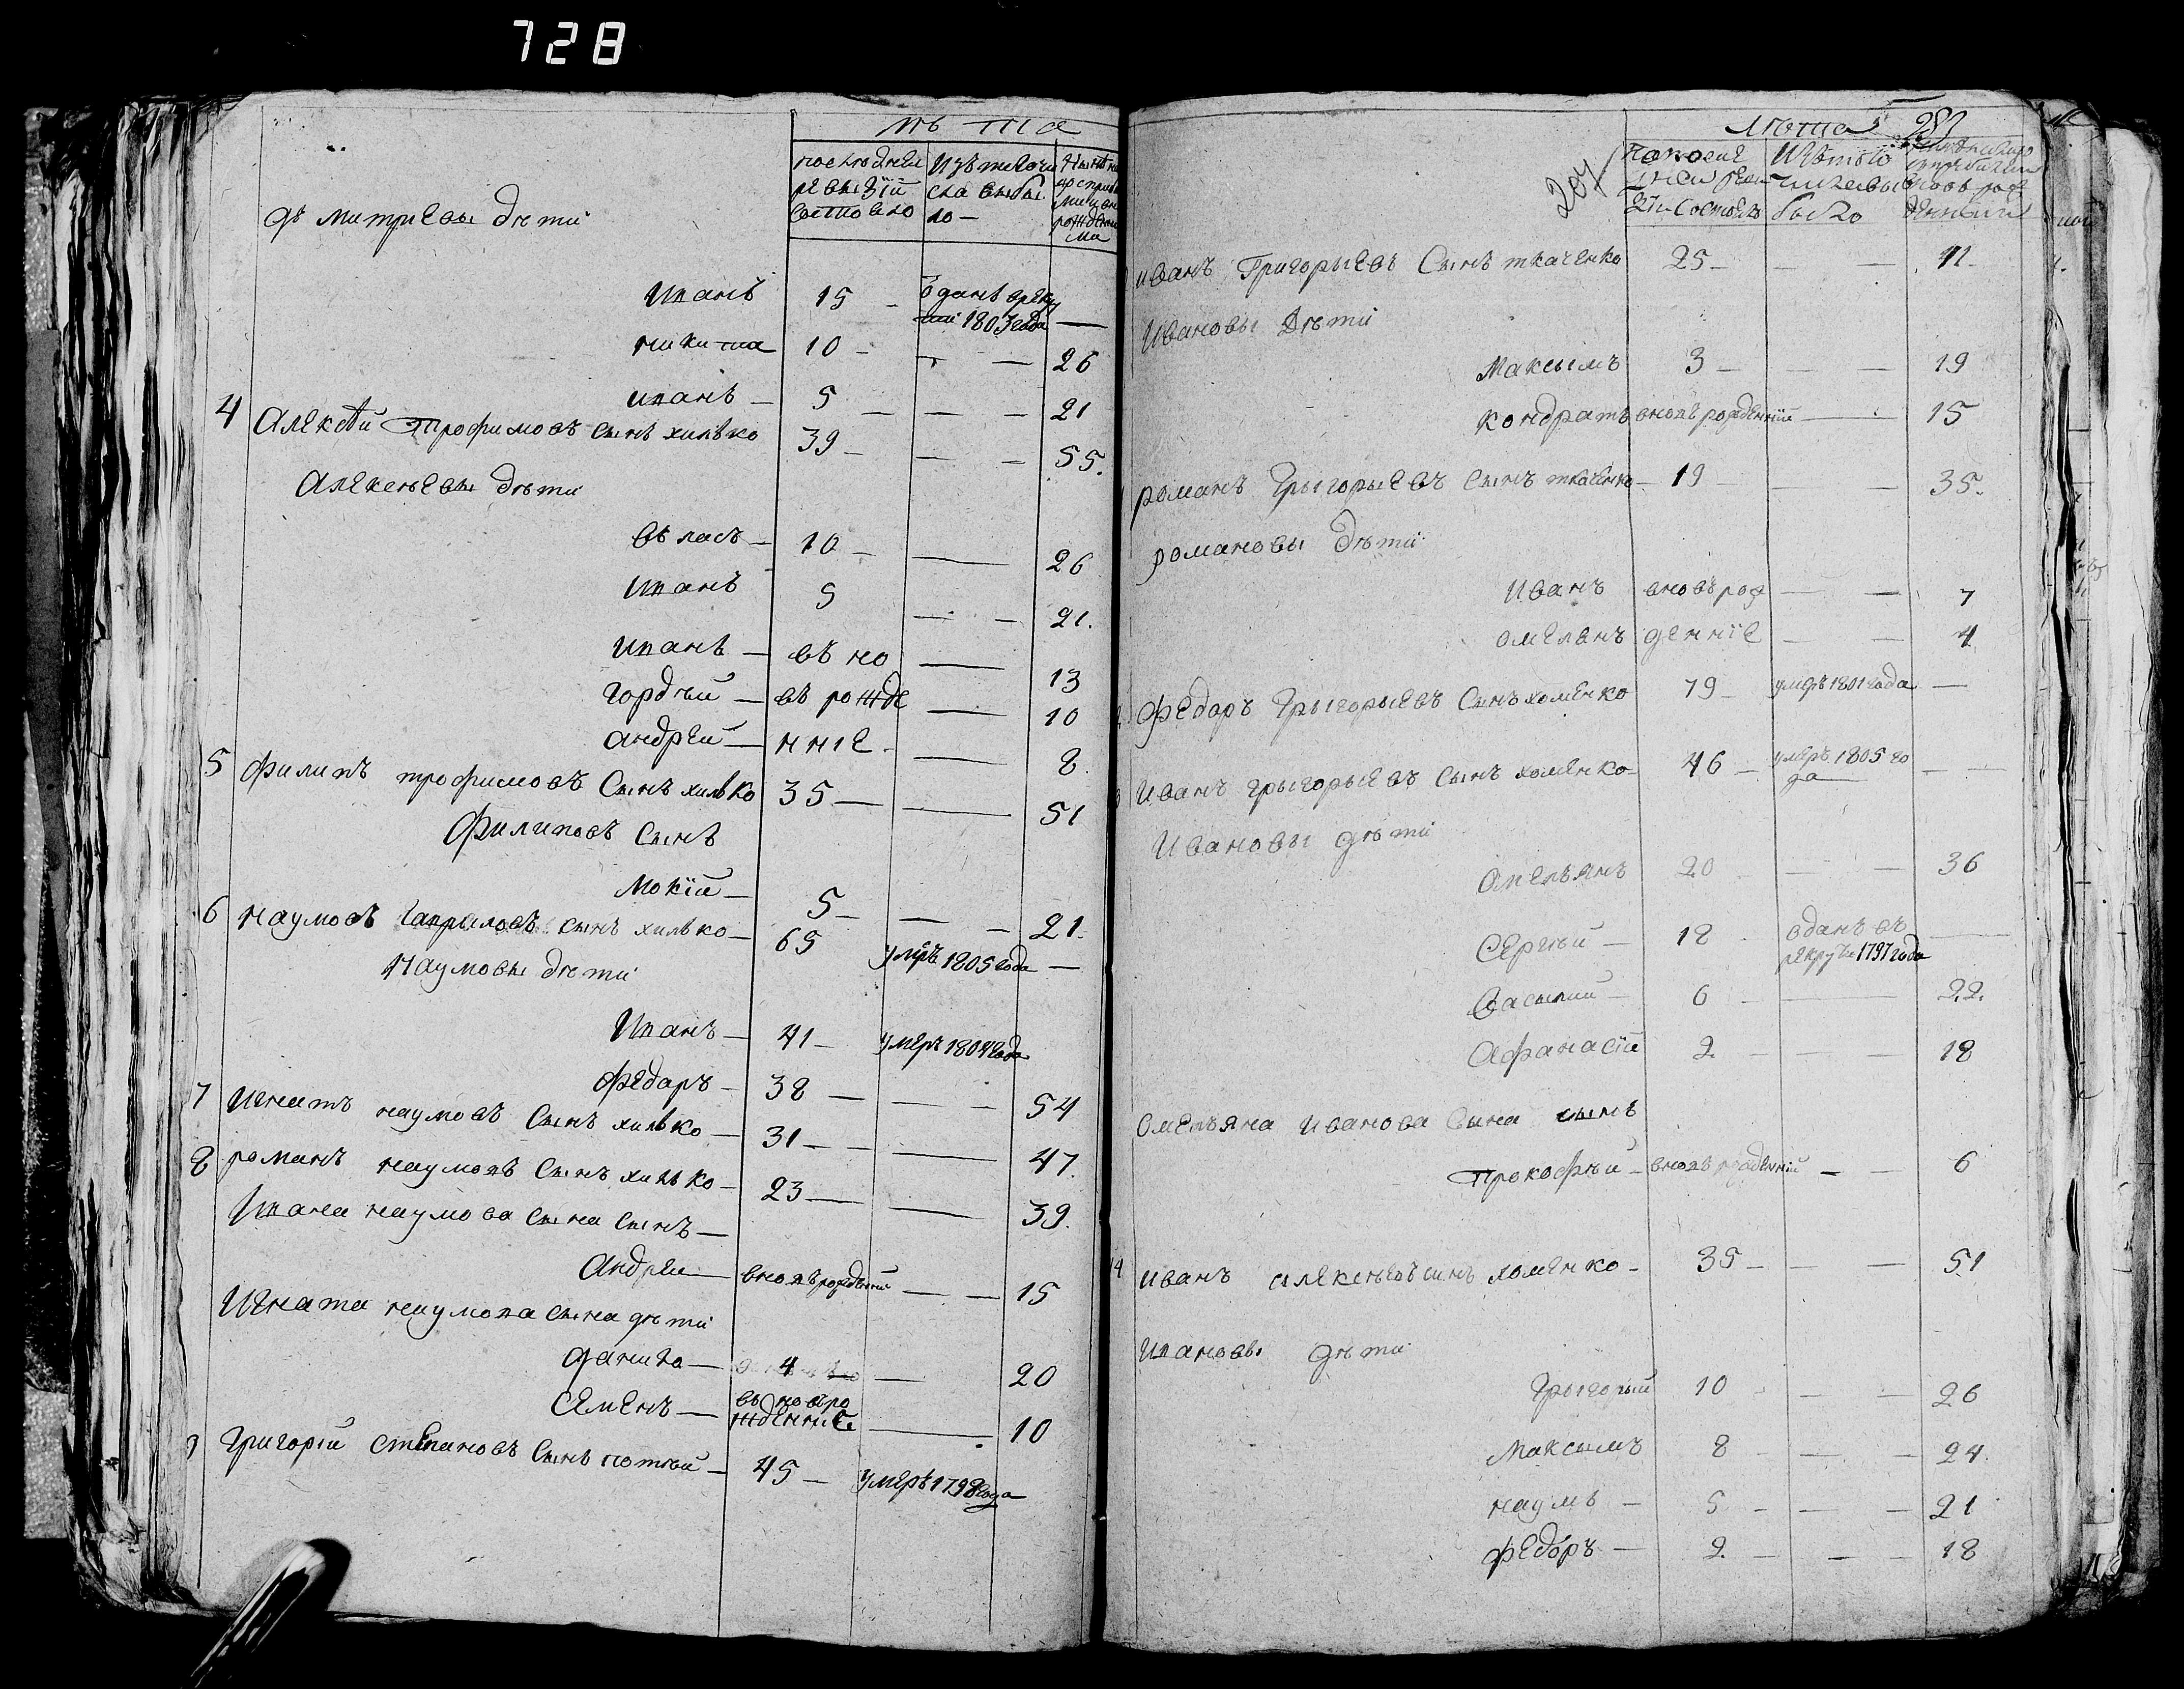 728
лѣта
последней изътого чи
ревизїи сла выбы
состояло ло —
Дъмитриевы дѣти
Иванъ 15 — одансъ вреку
1803 года —
Никита 10 — — — 26
Иванъ — 5 — — — 21
4 Алексѣй Трофимовъ сынъ хилько 39 — — — 55.
Алексѣевы дѣти
Вьласъ — 10 — — 26
Иванъ 5 — — 21.
Иванъ — въ но — 13
Гордѣй — въ рожде — 10
Андрей — нніе — — 8.
5 Филипъ трофимовъ Сынъ хилько 35 — — 51
Филиповъ Сынъ
Мокїй — 5 — — — 21.
6 Наумовъ Гавриловъ сынъ хилько — 65 умръ 1805 года —
Наумовы дѣти
Иванъ — 41 — умеръ 1804 года
Федаръ — 38 — — — 54
7 Игнатъ наумовъ Сынъ хилько — 31 — — 47.
8 романъ наумовъ Сынъ хилько — 23 — — 39.
Ивана наумова Сына Сынъ —
Андрей — вновърожденній — — 15
Игната наумова Сына дѣти
Данило — 4 — 20
Семенъ — въ новъро
жденніе — 10
9 Григорій Степановъ Сынъ — 45 — умеръ 1798 года
204
лѣта 281
после
дней реви
зїи состоялъ было
Иванъ Григорьевъ Сынъ ткаченко 25 — — — 41
Ивановы Дѣти
Максымъ 3 — — — 19
Кондратъ вновърожденнїй — 15
романъ Грыгорыевъ Сынъ ткаченко — 19 — — 35.
романовы дѣти
Иванъ вновърож — — 7
омелянъ деннїе — — 4
Федаръ Грыгорыевъ Сынъ хоменко 79 — умеръ 1801 года —
Иванъ Грыгорыевъ сынъ хоменко — 46 — умеръ 1805 го
да — —
Ивановы дѣти
Омельянъ 20 — — 36
Сергѣй — 18 одансъ въ
рекруты 1797 года —
Василий — 6 — — 22.
Афанасїй 2 — — — 18
Омельяна Иванова Сына сынъ
Прокофѣй — вновърожденнїй — — 6
14 Иванъ алексѣевъ сынъ хоменко — 35 — — — 51
Ивановы дѣти
Грыгорый 10 — — 26
Максымъ 8 — — — 24.
Наумъ — 5 — — — 21
Федоръ — 2 — — — 18